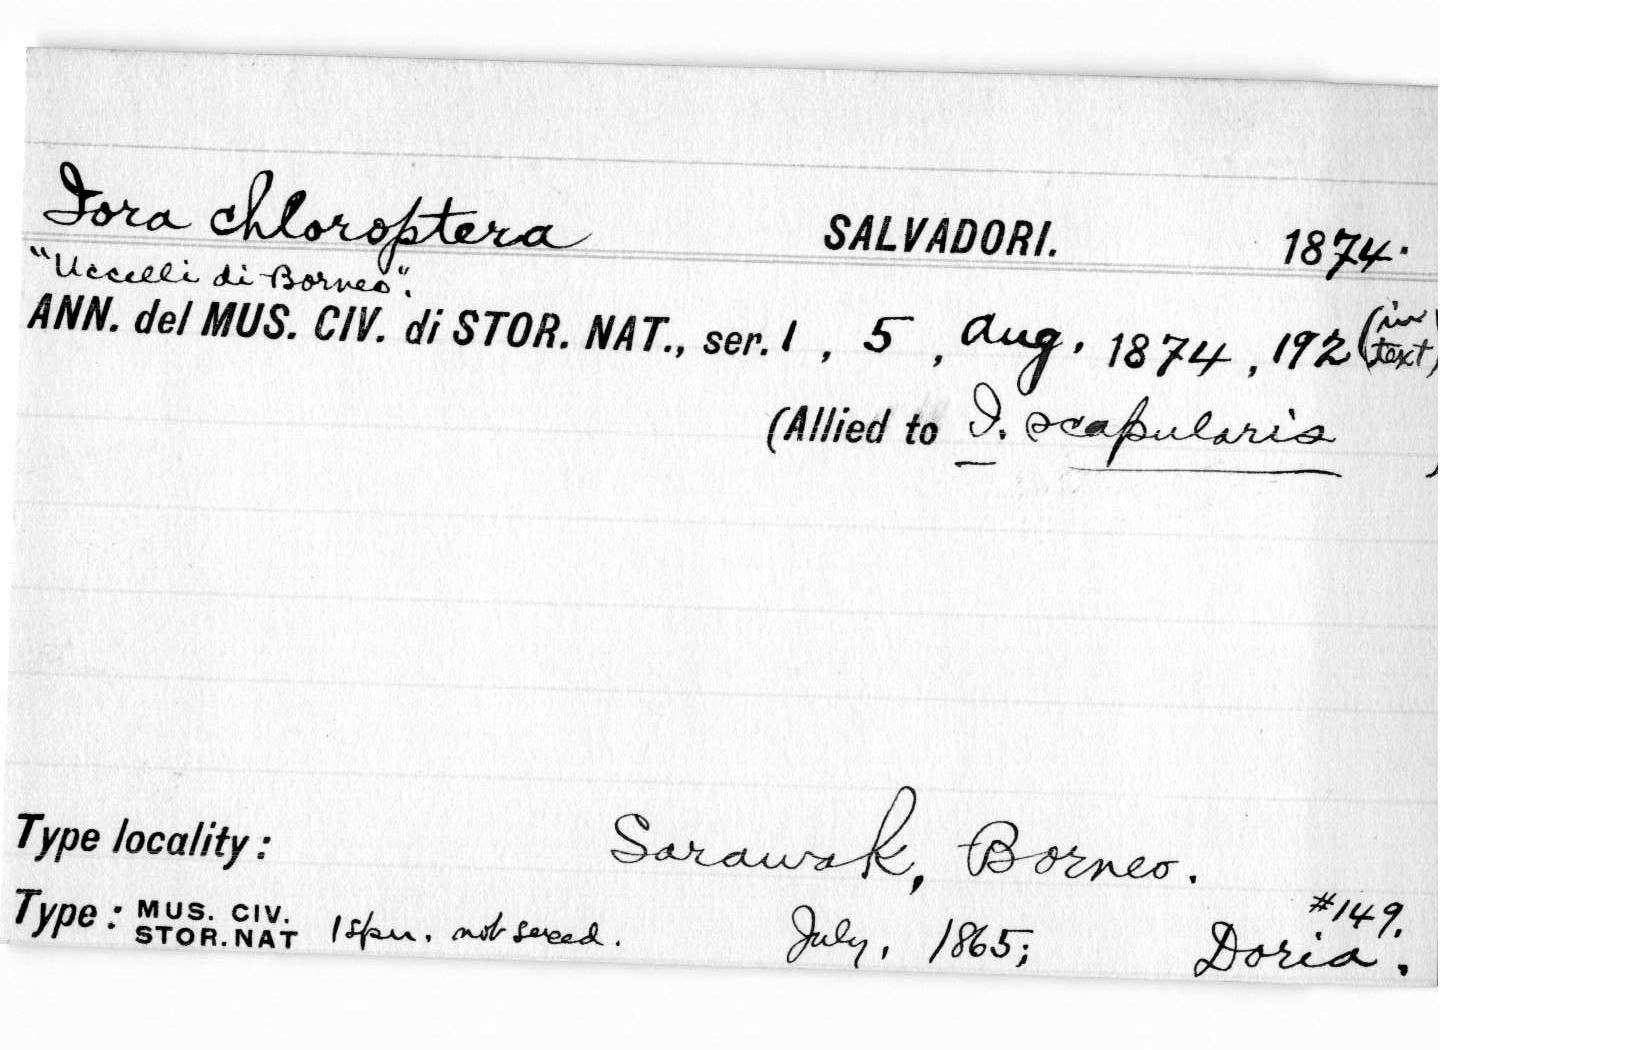 Iora chloroptera SALVADORI. 1874.
"Uccelli di Borneo".
ANN. del MUS. CIV. di STOR. NAT., ser. 1, 5, Aug. 1874, 192 (in text)
(Allied to I. scapularis )
Type locality: Sarawak, Borneo.
#149.
Type: MUS. CIV. STOR. NAT 1 spm. not sexed. July, 1865; Doria.